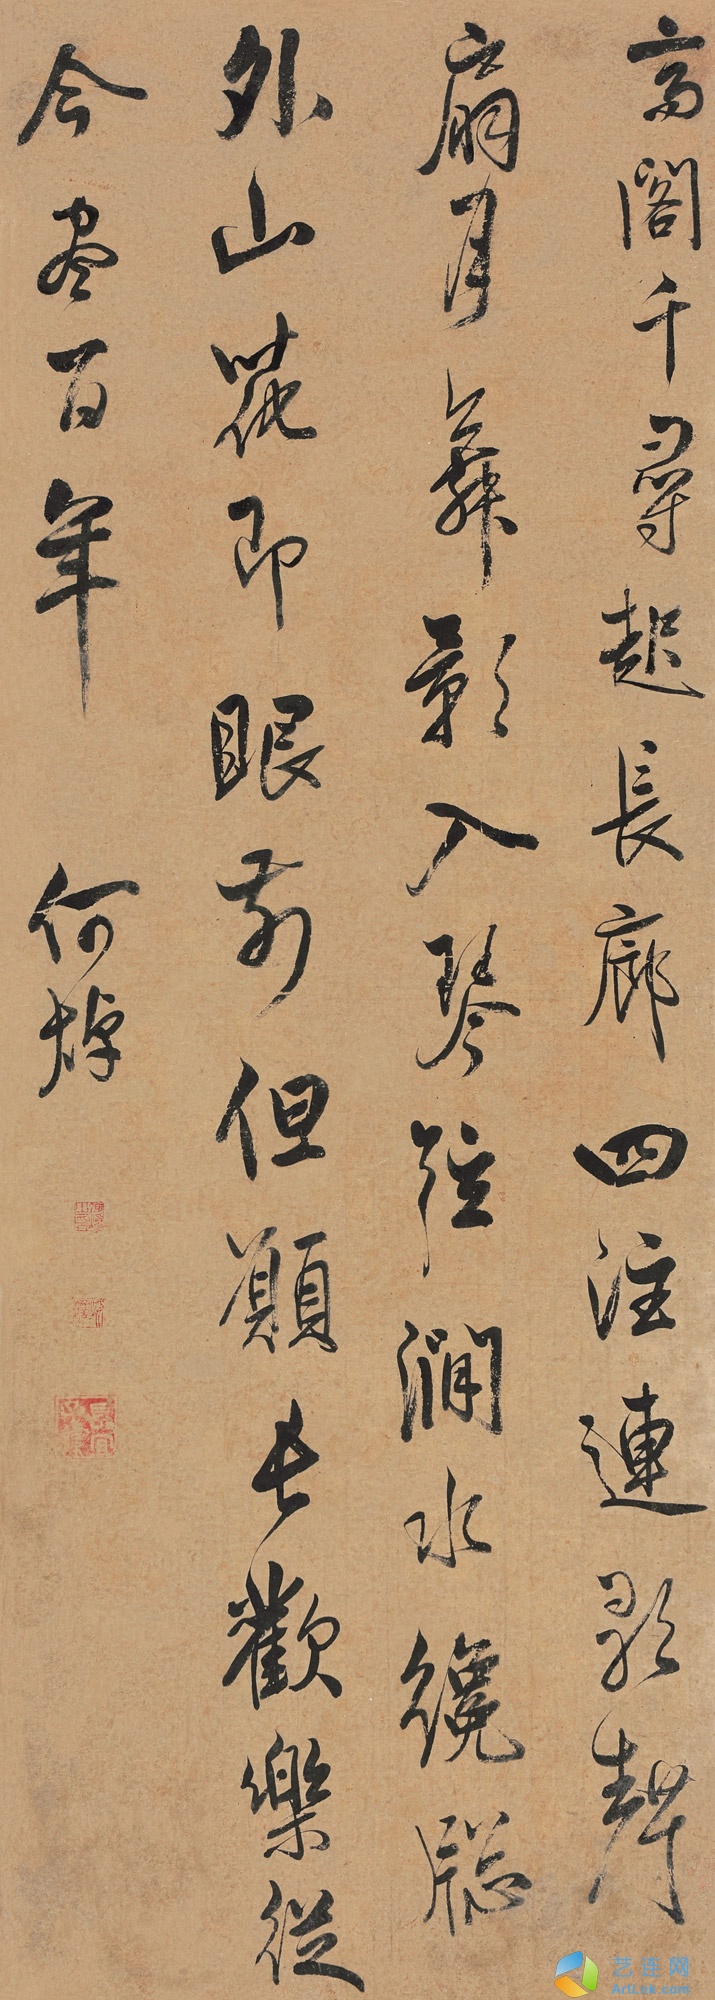 高閣千尋起長廊四注連歌聲
扇月舞影入琴弦澗水纔牕
外山花即眼前但願長歡樂從
今盡百年
何焯
艺连网
ArtLnk.com